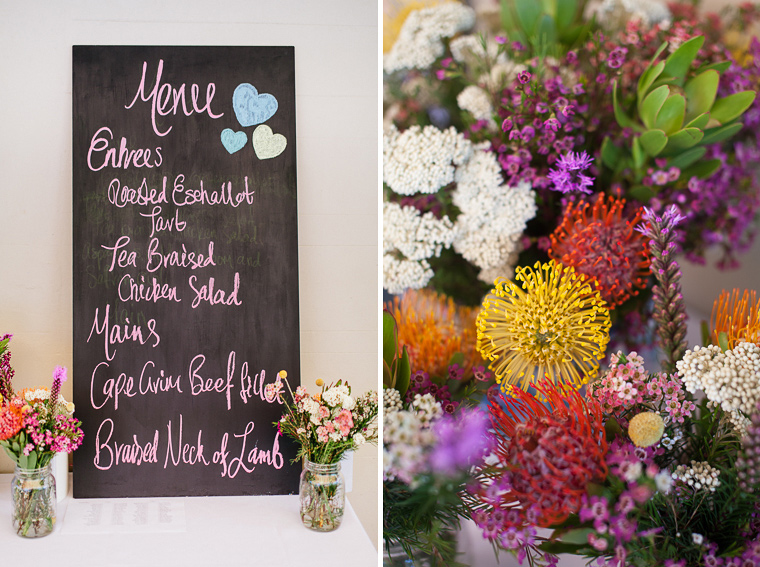 Menu
Entrees
Roasted Eschallot
Tart
Tea Braised
Chicken Salad
Mains
Cape Grim Beef fillet
Braised Neck of Lamb